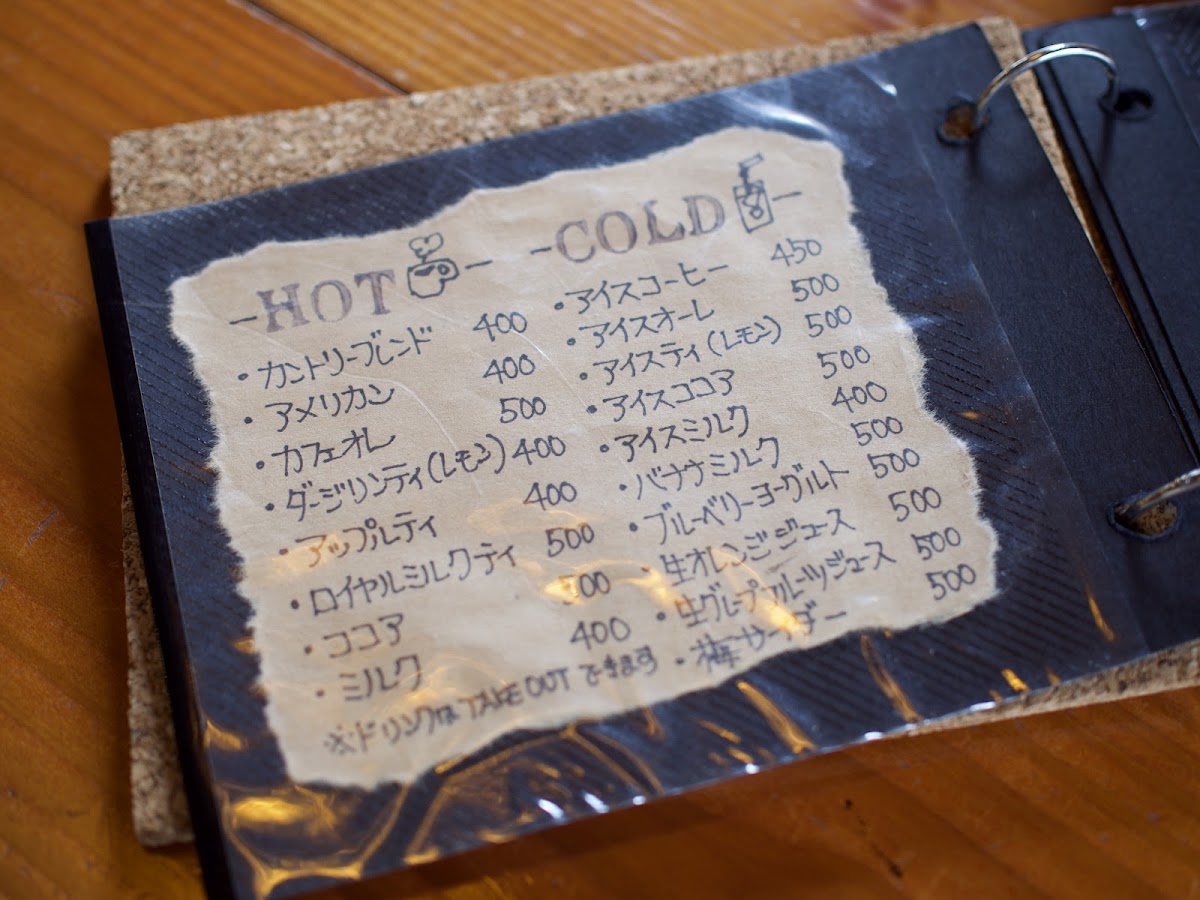 -HOT-
・カントリーブレンド 400
・アメリカン 400
・カフェオレ 500
・ダージリンティ(レモン) 400
・アップルティ 400
・ロイヤルミルクティ 500
・ココア 500
・ミルク 400
※ドリンクは TAKE OUT できます
-COLD-
・アイスコーヒー 450
・アイスオーレ 500
・アイスティ(レモン) 500
・アイスココア 500
・アイスミルク 400
・バナナミルク 500
・ブルーベリーヨーグルト 500
・生オレンジジュース 500
・生グレープフルーツジュース 500
・梅サイダー 500